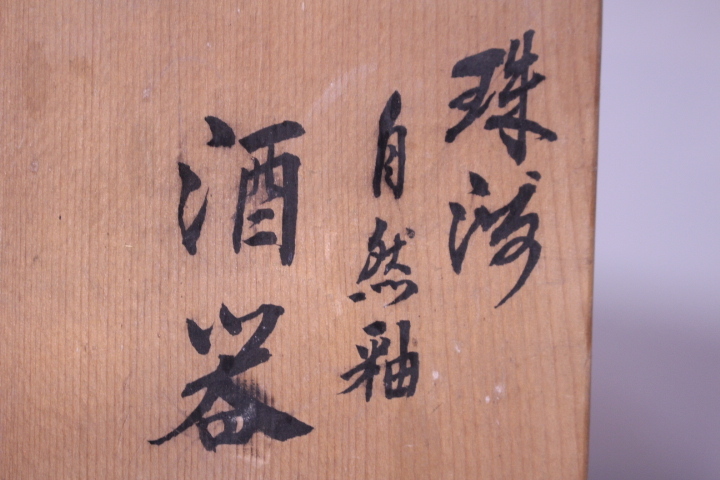 珠洲
自然釉
酒器